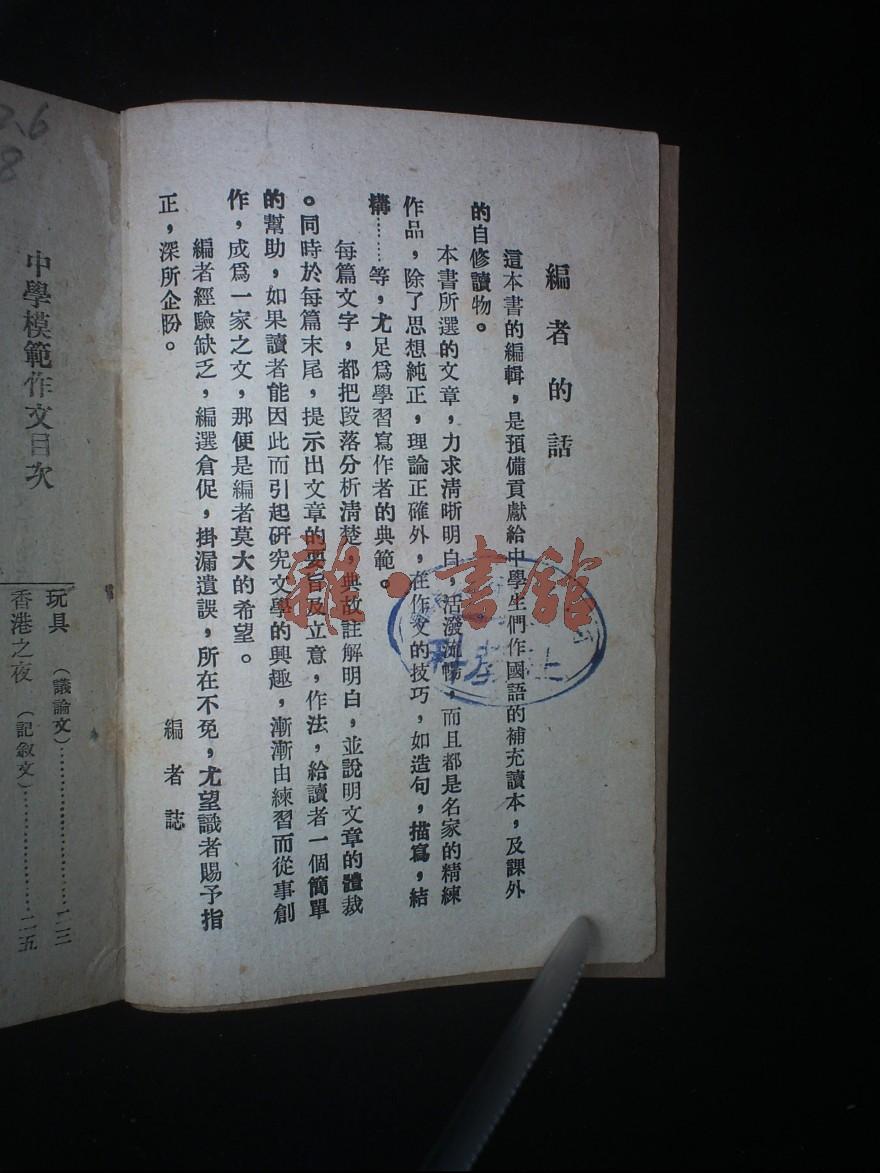 編者的話
這本書的編輯，是預備貢獻給中學生們作國語的補充讀本，及課外
的自修讀物。
本書所選的文章，力求清晰明白，活潑流暢，而且都是名家的精練
作品，除了思想純正，理論正確外，在作文的技巧，如造句，描寫，結
構……等，尤足為學習寫作者的典範。
每篇文字，都把段落分析清楚，典故註解明白，並說明文章的體裁
。同時於每篇末尾，提示出文章的要旨及立意，作法，給讀者一個簡單
的幫助，如果讀者能因此而引起研究文學的興趣，漸漸由練習而從事創
作，成爲一家之文，那便是編者莫大的希望。
編者經驗缺乏，編選倉促，掛漏遺誤，所在不免，尤望識者賜予指
正，深所企盼。
編者誌
中學模範作文目次
玩具（議論文）……………………二三
香港之夜（記敘文）………………二五
雜·書館